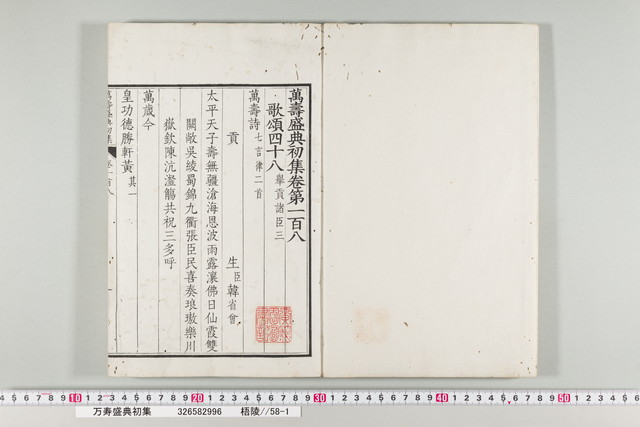 萬壽盛典初集卷第一百八
歌頌四十八 舉貢諸臣三
萬壽詩 七言律二首
貢生臣韓省曾
太平天子壽無疆滄海恩波雨露瀼佛日仙霞雙
關敞吳綾蜀錦九衢張臣民喜奏琅璈樂川
嶽欽陳沆瀣觴共祝三多呼
萬歲今
皇功德勝軒黃 其一
萬壽盛典初集 卷一百八
10 20 30 40 50
万寿盛典初集 326582996 梧陵//58-1